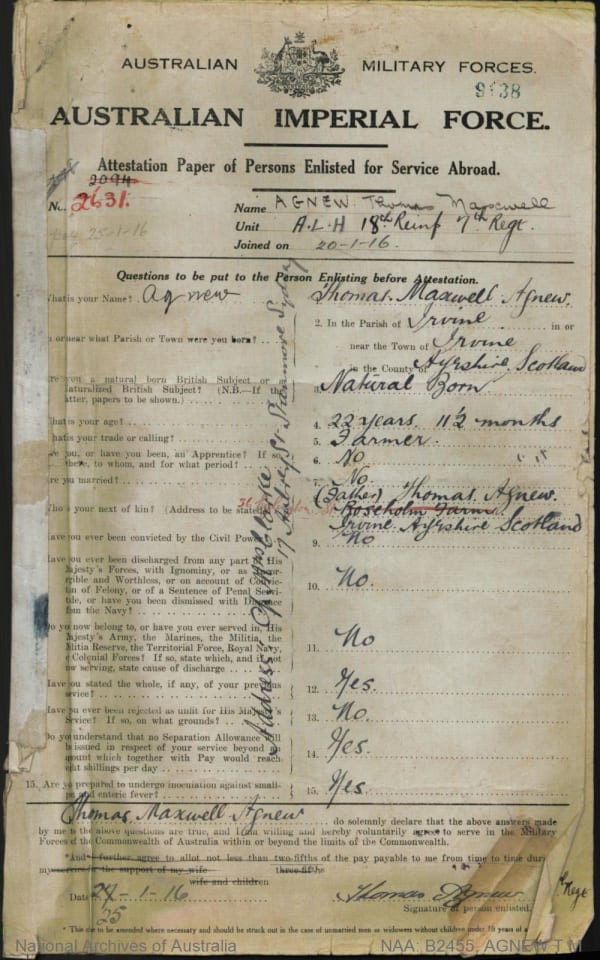 AUSTRALIAN MILITARY FORCES.
9638
AUSTRALIAN IMPERIAL FORCE.
Attestation Paper of Persons Enlisted for Service Abroad.
2094
No. 2631.
25-1-16
Name AGNEW. Thomas Maxwell
Unit A.L.H 18th Reinf 7th Regt.
Joined on 20-1-16.
Questions to be put to the Person Enlisting before Attestation.
hat is your Name? Agnew
Thomas Maxwell Agnew.
n or near what Parish or Town were you born?
2. In the Parish of Irvine in or
near the Town of Irvine
in the County of Ayrshire, Scotland
re you a natural born British Subject or a
Naturalized British Subject? (N.B.—If the
latter, papers to be shown.)
3. Natural Born
hat is your age?
4. 22 years 11½ months
hat is your trade or calling?
5. Farmer.
re you, or have you been, an Apprentice? If so
where, to whom, and for what period?
6. No
re you married?
7. No
Who is your next of kin? (Address to be stated)
(Father) Thomas Agnew.
Roseholm Farm
Irvine Ayrshire Scotland
ave you ever been convicted by the Civil Power?
9. No
ave you ever been discharged from any part of His
Majesty's Forces, with Ignominy, or as Incor-
rigible and Worthless, or on account of Convic-
tion of Felony, or of a Sentence of Penal Servi-
tude, or have you been dismissed with Disgrace
from the Navy?
10. No
Do you now belong to, or have you ever served in, His
Majesty's Army, the Marines, the Militia, the
Militia Reserve, the Territorial Force, Royal Navy,
or Colonial Forces? If so, state which, and if not
now serving, state cause of discharge
11. No
Have you stated the whole, if any, of your previous
service?
12. Yes.
Have you ever been rejected as unfit for His Majesty's
Service? If so, on what grounds?
13. No.
Do you understand that no Separation Allowance will
be issued in respect of your service beyond an
amount which together with Pay would reach
eight shillings per day
14. Yes.
15. Are you prepared to undergo inoculation against small-
pox and enteric fever?
15. Yes
Address
Sydney
Thomas Maxwell Agnew do solemnly declare that the above answers made
by me to the above questions are true, and I am willing and hereby voluntarily agree to serve in the Military
Forces of the Commonwealth of Australia within or beyond the limits of the Commonwealth.
*And I further agree to allot not less than two-fifths of the pay payable to me from time to time duri
my service for the support of my wife three-fifths
wife and children
Date 24-1-16
25
Thomas Agnew
Signature of person enlisted.
* This clause to be amended where necessary and should be struck out in the case of unmarried men as widowers without children under 18 years of a
National Archives of Australia
NAA: B2455, AGNEW T M